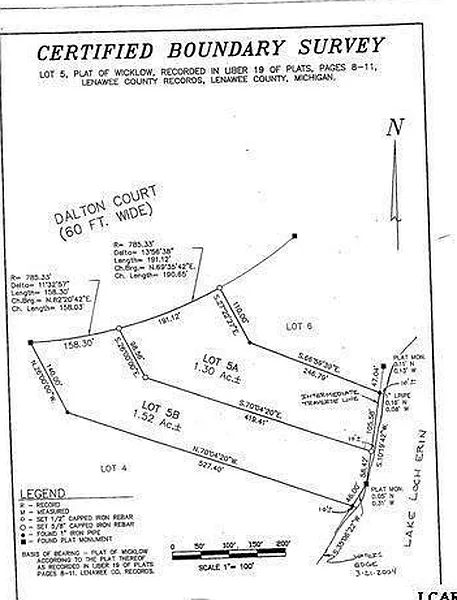 CERTIFIED BOUNDARY SURVEY
LOT 5, PLAT OF WICKLOW, RECORDED IN LIBER 19 OF PLATS, PAGES 8-11,
LENAWEE COUNTY RECORDS, LENAWEE COUNTY, MICHIGAN.
N
DALTON COURT
(60 FT. WIDE)
R= 785.33'
Delta= 13°56'38"
Length= 191.12'
Ch.Brg.= N.69°35'42"E.
Ch. Length= 190.65'
R= 785.33'
Delta= 11°32'57"
Length= 158.30'
Ch.Brg.= N.82°20'42"E.
Ch. Length= 158.03'
191.12'
158.30'
110.00'
LOT 6
LOT 5A
1.30 Ac.±
246.79'
47.04'
PLAT MON.
INTERMEDIATE
TRAVERSE LINE
105.56'
S.10°19'42"W.
140.00'
LOT 5B
1.52 Ac.±
S.70°04'20"E.
419.41'
N.70°04'20"W.
527.40'
58.47'
46.00'
PLAT MON.
0.05' N
0.31' W
LAKE LOCH ERIN
LOT 4
LEGEND
R - RECORD
M - MEASURED
○ - SET 1/2" CAPPED IRON REBAR
○ - SET 5/8" CAPPED IRON REBAR
● - FOUND 1" IRON PIPE
■ - FOUND PLAT MONUMENT
BASIS OF BEARING - PLAT OF WICKLOW
ACCORDING TO THE PLAT THEREOF
AS RECORDED IN LIBER 19 OF PLATS
PAGES 8-11, LENAWEE CO. RECORDS.
0' 50' 100' 150' 200'
SCALE 1"= 100'
WATERS
EDGE
3-21-2004